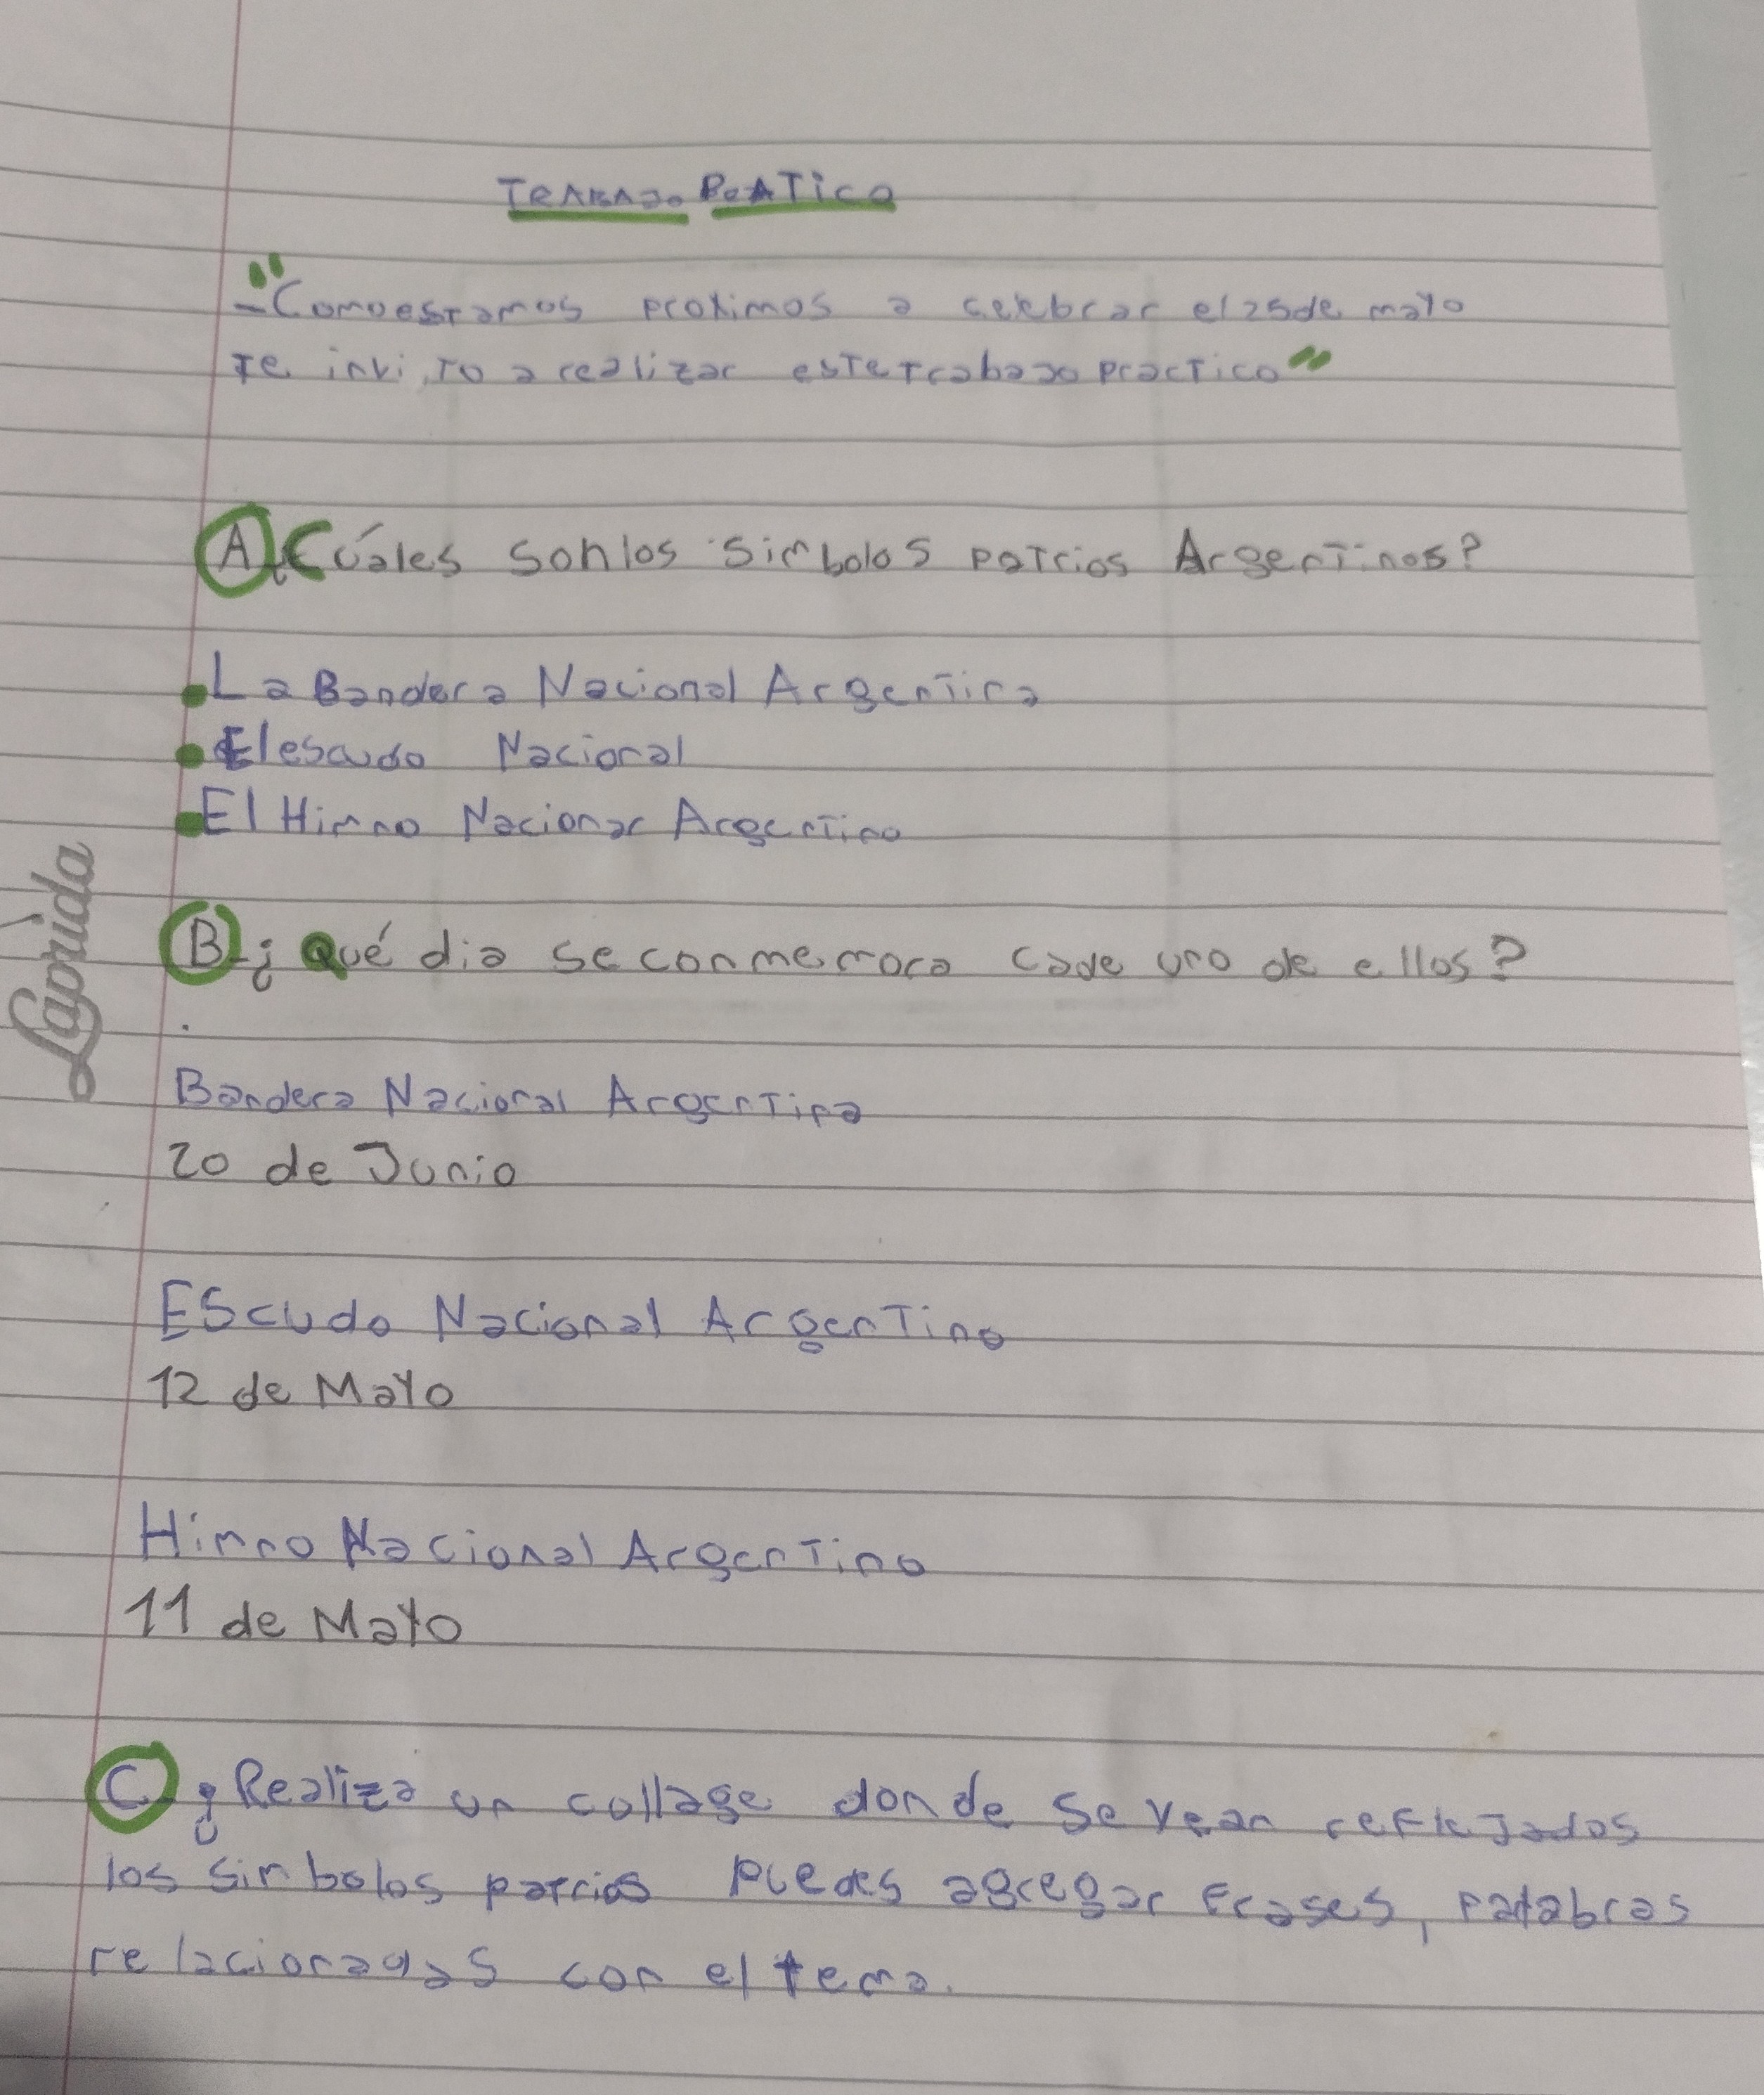 TRABAJO PRATico
"-Como estamos proximos a celebrar el 25 de mayo
te invito a realizar este trabajo practico"
A-¿Cuáles son los simbolos patrios Argentinos?
•La Bandera Nacional Argentina
•El escudo Nacional
•El Himno Nacionar Argentino
B-¿Qué dia se conmemora cade uno de ellos?
Bandera Nacional Argentina
20 de Junio
Escudo Nacional Argentino
12 de Mayo
Himno Nacional Argentino
11 de Mayo
C-¿Realiza un collage donde se vean reflejados
los simbolos patrios puedes agregar frases, palabras
relacionadas con el tema.
Laprida